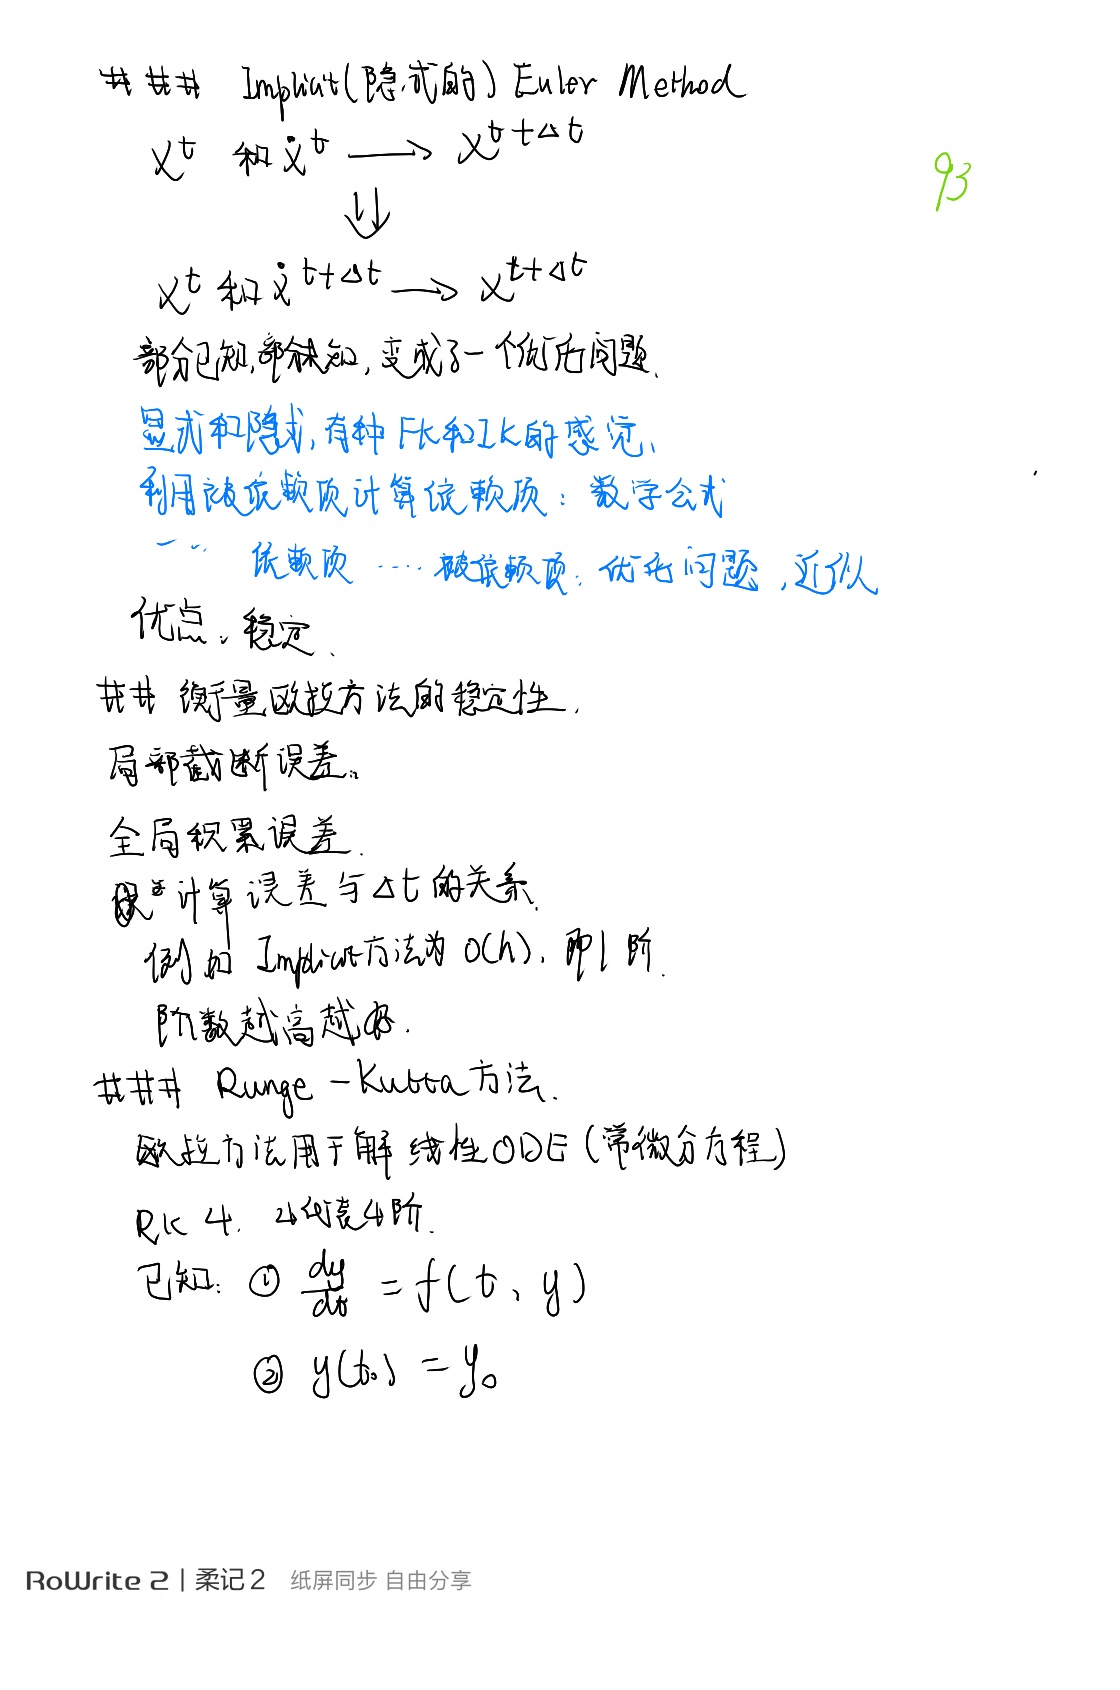 ### Implicit(隐式的) Euler Method
x^t 和 ẋ^t ⟶ x^{t+Δt}
93
⇓
x^t 和 ẋ^{t+Δt} ⟶ x^{t+Δt}
部分已知,部分未知,变成了一个优化问题.
显式和隐式,有种FK和IK的感觉、
利用被依赖项计算依赖项: 数学公式
一 .. 依赖项 .... 被依赖项: 优化问题,近似
优点: 稳定.
## 衡量欧拉方法的稳定性.
局部截断误差.
全局积累误差.
计算误差与Δt的关系.
例如 Implicit方法为 O(h), 即1阶.
阶数越高越好.
### Runge-Kutta方法.
欧拉方法用于解线性ODE(常微分方程)
RK 4. 4代表4阶.
已知: ① dy/dt = f(t, y)
② y(t₀) = y₀
RoWrite 2 | 柔记 2 纸屏同步 自由分享